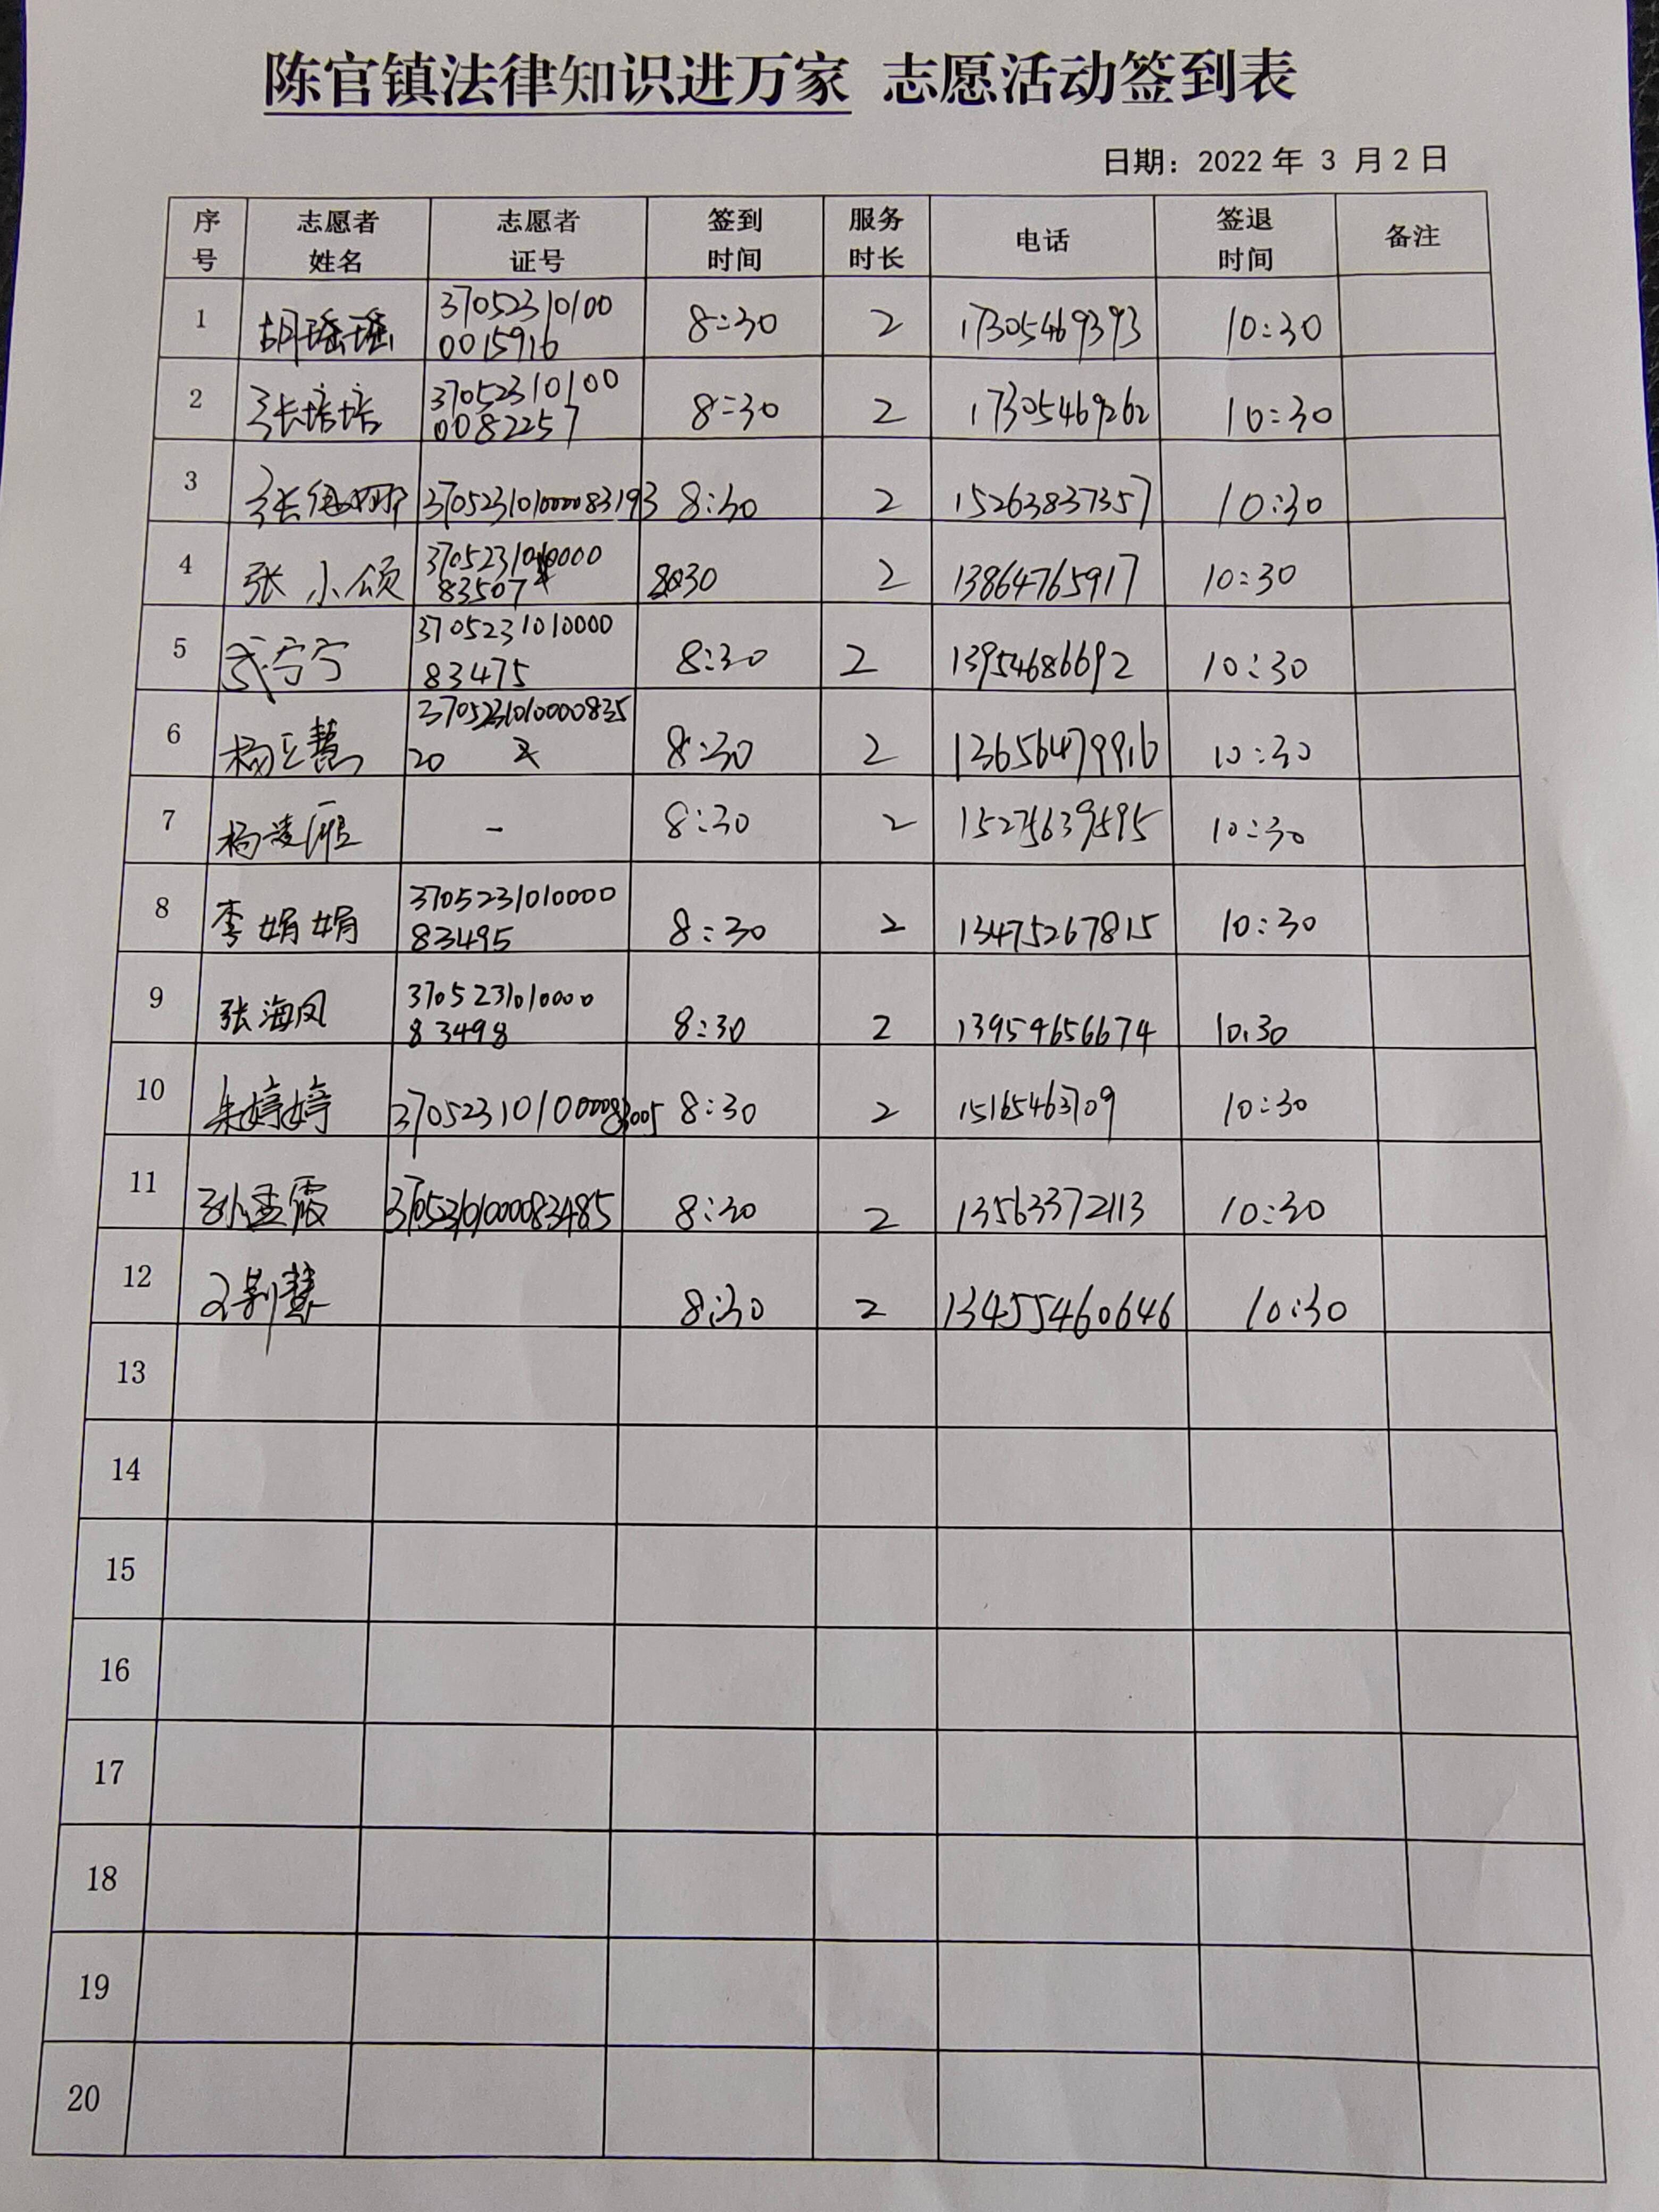 陈官镇法律知识进万家 志愿活动签到表
日期：2022 年 3 月 2 日
序号 志愿者姓名 志愿者证号 签到时间 服务时长 电话 签退时间 备注
1 胡瑶瑶 37052310100 0015916 8:30 2 17305469393 10:30
2 张培培 37052310100 0082257 8:30 2 17305469262 10:30
3 370523101000083193 8:30 2 15263837357 10:30
4 张小颂 3705231010000 83507 8:30 2 13864765917 10:30
5 武宁宁 3705231010000 83475 8:30 2 13954686692 10:30
6 杨立慧 3705231010000835 20 8:30 2 13656479916 10:30
7 杨凌雁 - 8:30 2 15275639595 10:30
8 李娟娟 3705231010000 83495 8:30 2 13475267815 10:30
9 张海凤 3705231010000 83498 8:30 2 13954656674 10:30
10 朱婷婷 370523101000083005 8:30 2 15165463709 10:30
11 孙孟霞 8:30 2 13563372113 10:30
12 8:30 2 13455460646 10:30
13
14
15
16
17
18
19
20